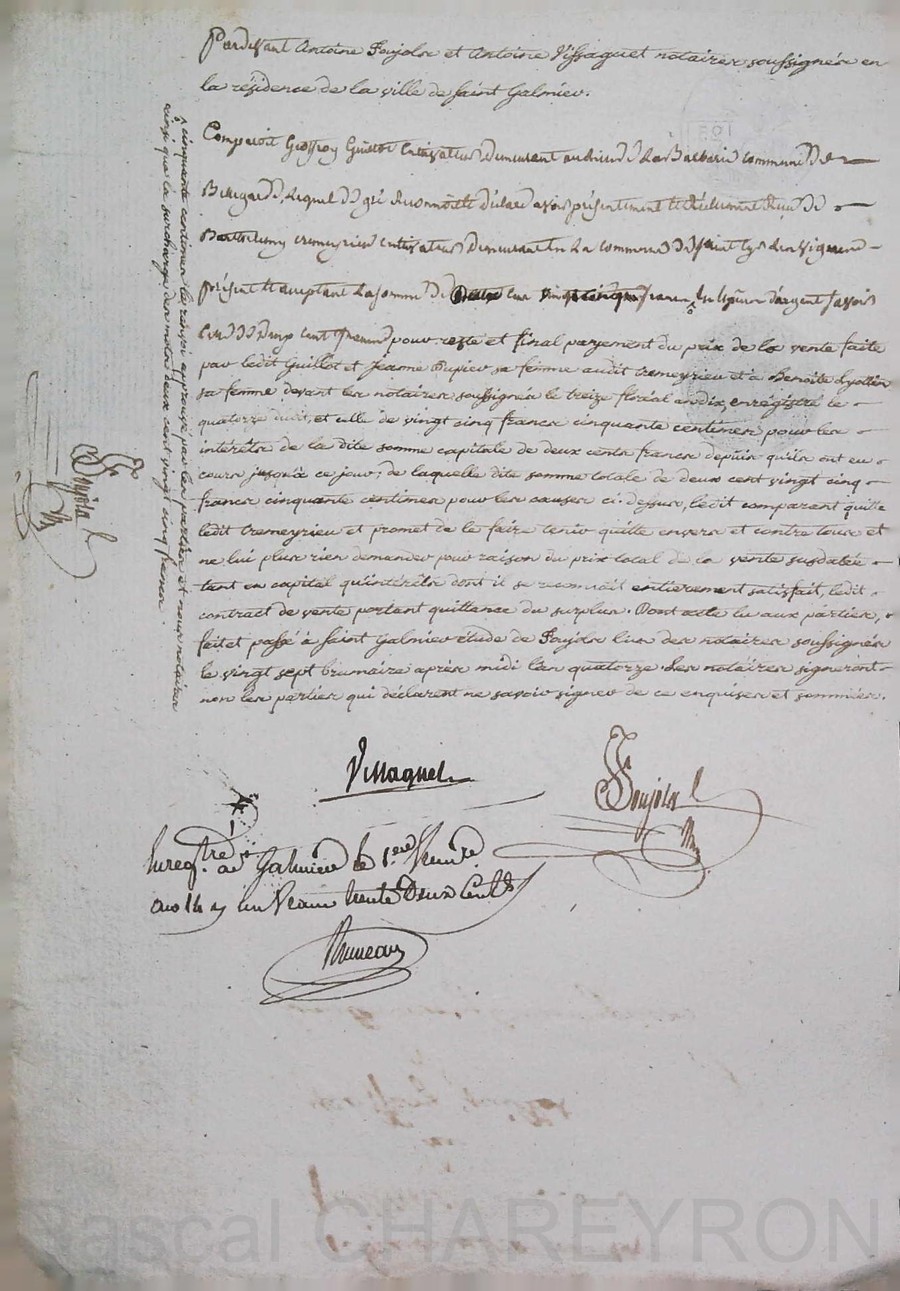 Pardevant Antoine Foujols et Antoine Vissaguet notaires soussignés en
la résidence de la ville de Saint Galmier.
Comparoit Geoffroy Guillot Cultivateur Demeurant au lieu de La Commune de
Bellegarde Lequel De gré Reconnoit et Déclare avoir présentement et Réellement Reçu De
Barthelemy Cremeyrieu Cultivateur Demeurant en La Commune De Saint Cyr les Vignes
présent et acceptant La somme De Deux Cent vingt cinq francs En Espèces d'argent Savoir
Celle De Deux Cent francs pour reste et final payement du prix de la vente faite
par ledit Guillot et Jeanne Dupier sa femme audit Cremeyrieu et à Benoite Lyottin
sa femme devant les notaires soussignés le treize floréal an dix, enrégistré le
quatorze dudit, et celle de vingt cinq francs cinquante centimes pour les
intérêts de la dite somme capitale de deux cents francs depuis qu'ils ont eu
cours jusqu'à ce jour; de laquelle dite somme totale de deux cent vingt cinq
francs cinquante centimes pour les causes ci-dessus, ledit comparant quitte
ledit Cremeyrieu et promet de le faire tenir quitte envers et contre tous et
ne lui plus rien demander pour raison du prix total de la vente susdatée
tant en capital qu'intérêts dont il se reconnait entièrement satisfait, ledit
contract de vente portant quittance du surplus. Dont acte lu aux parties,
fait et passé à Saint Galmier étude de Foujols l'un des notaires soussignés
le vingt sept brumaire après midi l'an quatorze. Les notaires signeront
non les parties qui déclarent ne savoir signer de ce enquises et sommées.
cinquante centimes les renvoi approuvé par les parties et nous notaires
ainsi que la surcharge des mots deux cent vingt cinq francs.
Foujols
Vissaguet
Foujols
Enregtré à St Galmier le 1er frimre
an 14 Reçu un franc trente Deux Centes
Bruneau
Pascal CHAREYRON